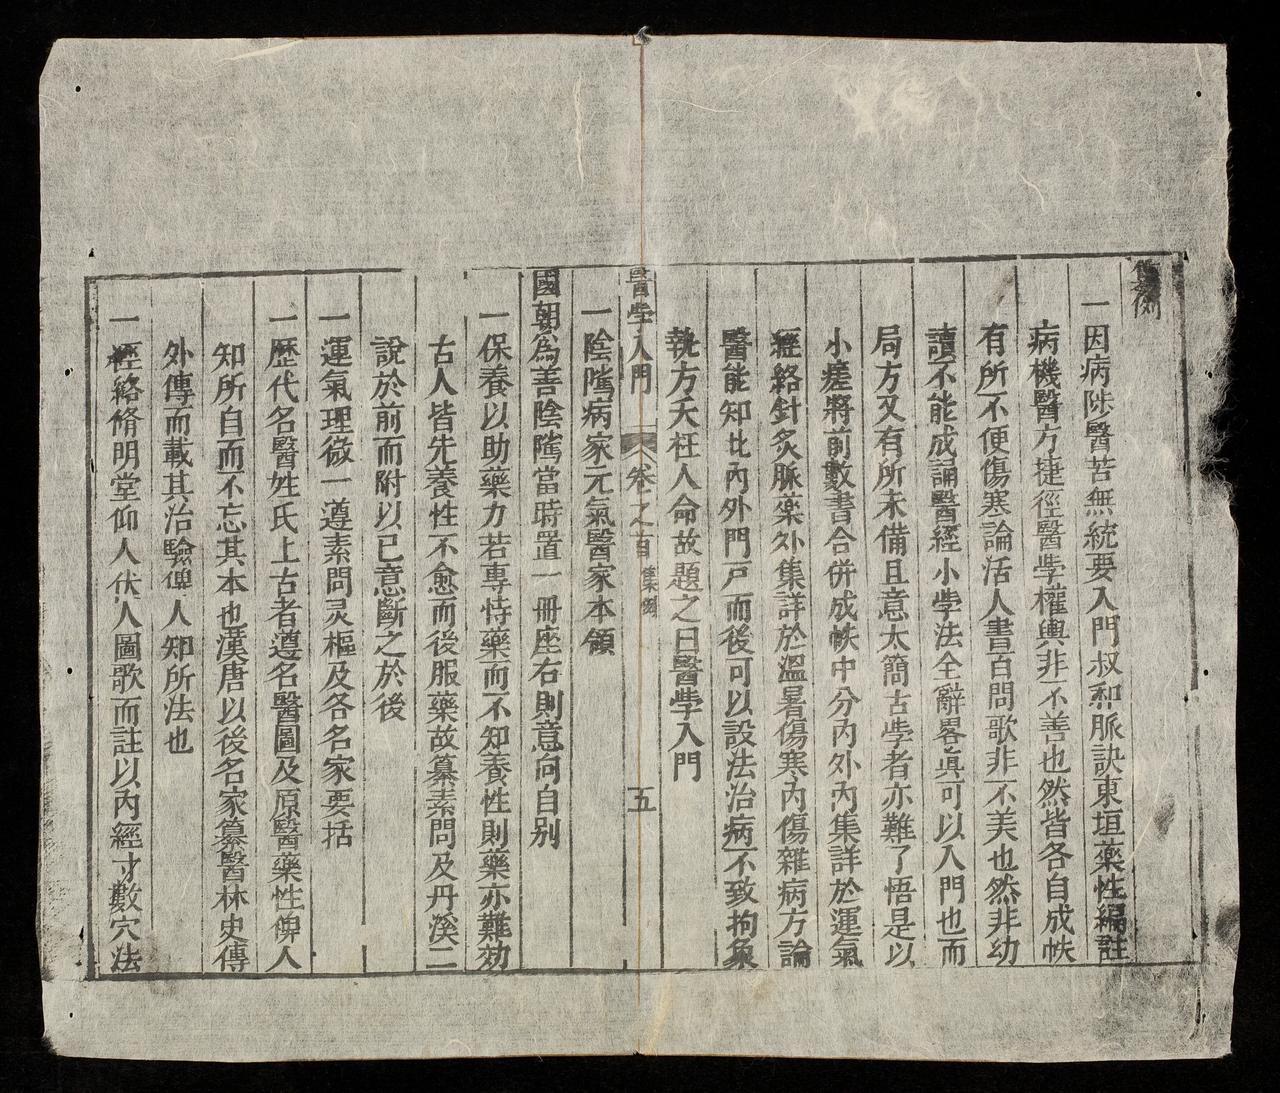 集例
一因病陟醫苦無統要入門叔和脈訣東垣藥性編註
病機醫方捷徑醫學權輿非不善也然皆各自成帙
有所不便傷寒論活人書百問歌非不美也然非幼
讀不能成誦醫經小學法全辭畧眞可以入門也而
局方又有所未備且意太簡古學者亦難了悟是以
小瘥將前數書合併成帙中分內外內集詳於運氣
經絡針灸脈藥外集詳於溫暑傷寒內傷雜病方論
醫能知此內外門戶而後可以設法治病不致拘象
執方夭枉人命故題之曰醫學入門
醫學入門 卷之首 集例 五
一陰隲病家元氣醫家本領
國朝爲善陰隲當時置一冊座右則意向自别
一保養以助藥力若專恃藥而不知養性則藥亦難効
古人皆先養性不愈而後服藥故纂素問及丹溪二
說於前而附以己意斷之於後
一運氣理微一遵素問灵樞及各名家要括
一歷代名醫姓氏上古者遵名醫圖及原醫藥性俾人
知所自而不忘其本也漢唐以後名家纂醫林史傳
外傳而載其治驗俾人知所法也
一經絡脩明堂仰人伏人圖歌而註以內經寸數穴法